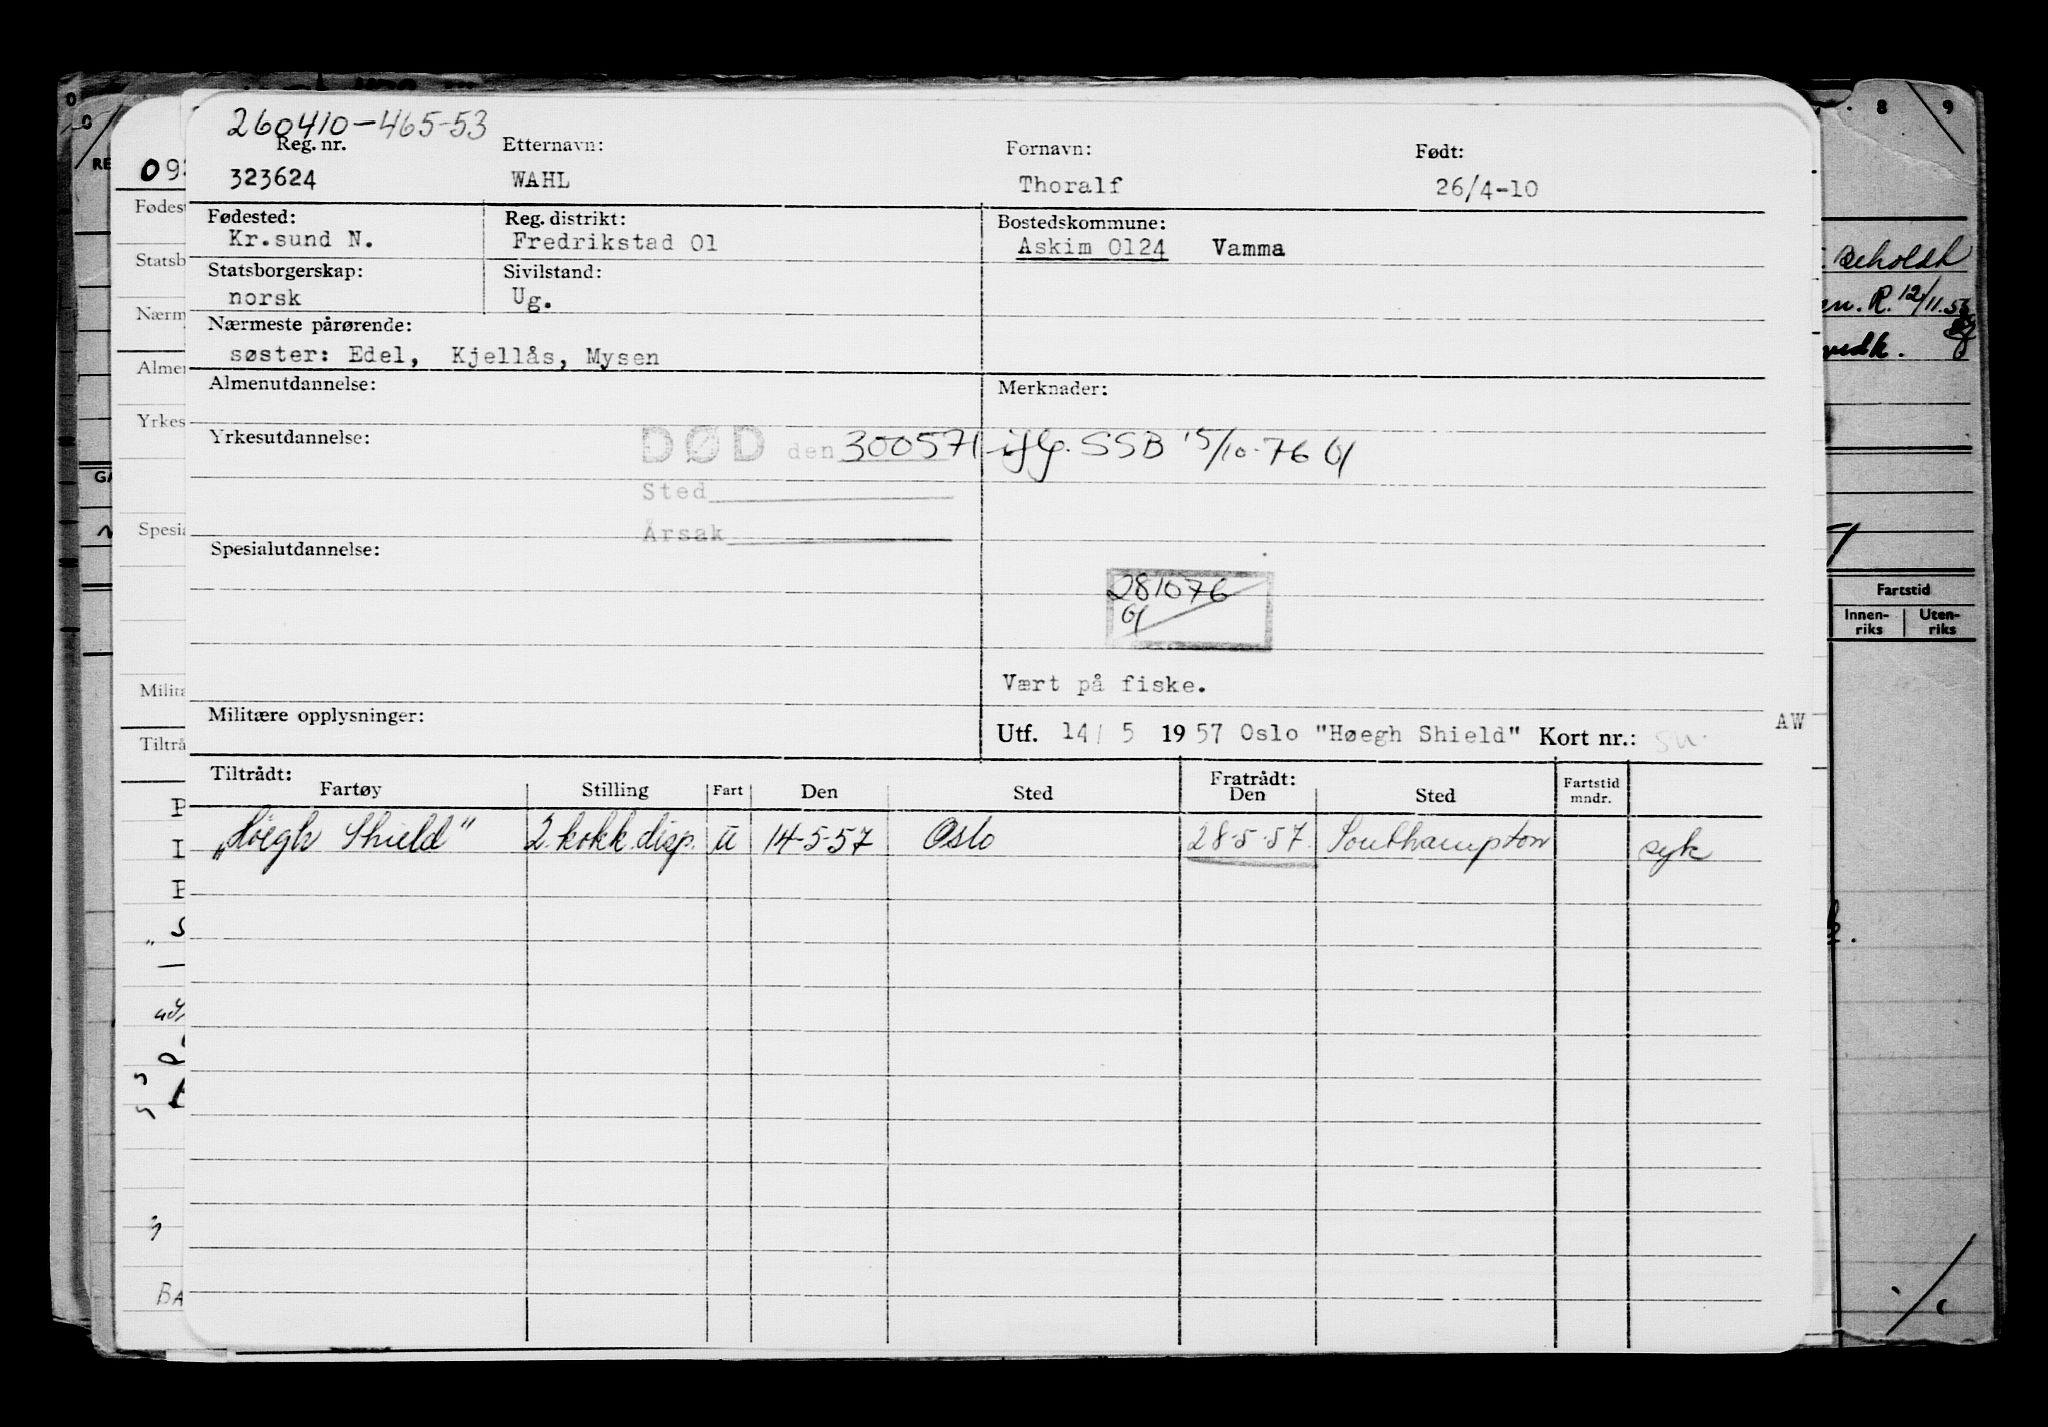 260410-465-53
Reg. nr. Etternavn: Fornavn: Født:
323624 WAHL Thoralf 26/4-10
Fødested: Reg. distrikt: Bostedskommune:
Kr.sund N. Fredrikstad 01 Askim 0124 Vamma
Statsborgerskap: Sivilstand:
norsk Ug.
Nærmeste pårørende:
søster: Edel, Kjellås, Mysen
Almenutdannelse: Merknader:
Yrkesutdannelse: DØD den 300571 iflg. SSB 15/10-76
Sted
Årsak
Spesialutdannelse:
281076
Vært på fiske.
Militære opplysninger: Utf. 14/ 5 1957 Oslo "Høegh Shield" Kort nr.: AW
Tiltrådt: Fratrådt:
Fartøy Stilling Fart Den Sted Den Sted Fartstid mndr.
„Höegh Shield" 2. kokk disp. u 14-5-57 Oslo 28-5-57. Southampton syk
8 9
Beholdt
R. 12/11.53
Fartstid
Innen-riks Uten-riks